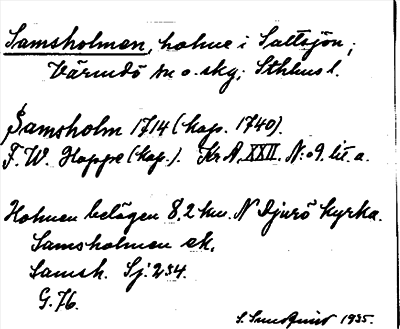 Samsholmen, holme i Saltsjön;
Värmdö sn o. skg; Sthlms l.
Samsholm 1714 (kop. 1740).
F. W. Hoppe (kop.). Kr A, XXII. N:o 9. lit. a.
Holmen belägen 8,2 km. N Djurö kyrka.
Samsholmen ek.
Samsh. Sj. 234.
G. 76.
S. Sundquist 1935.